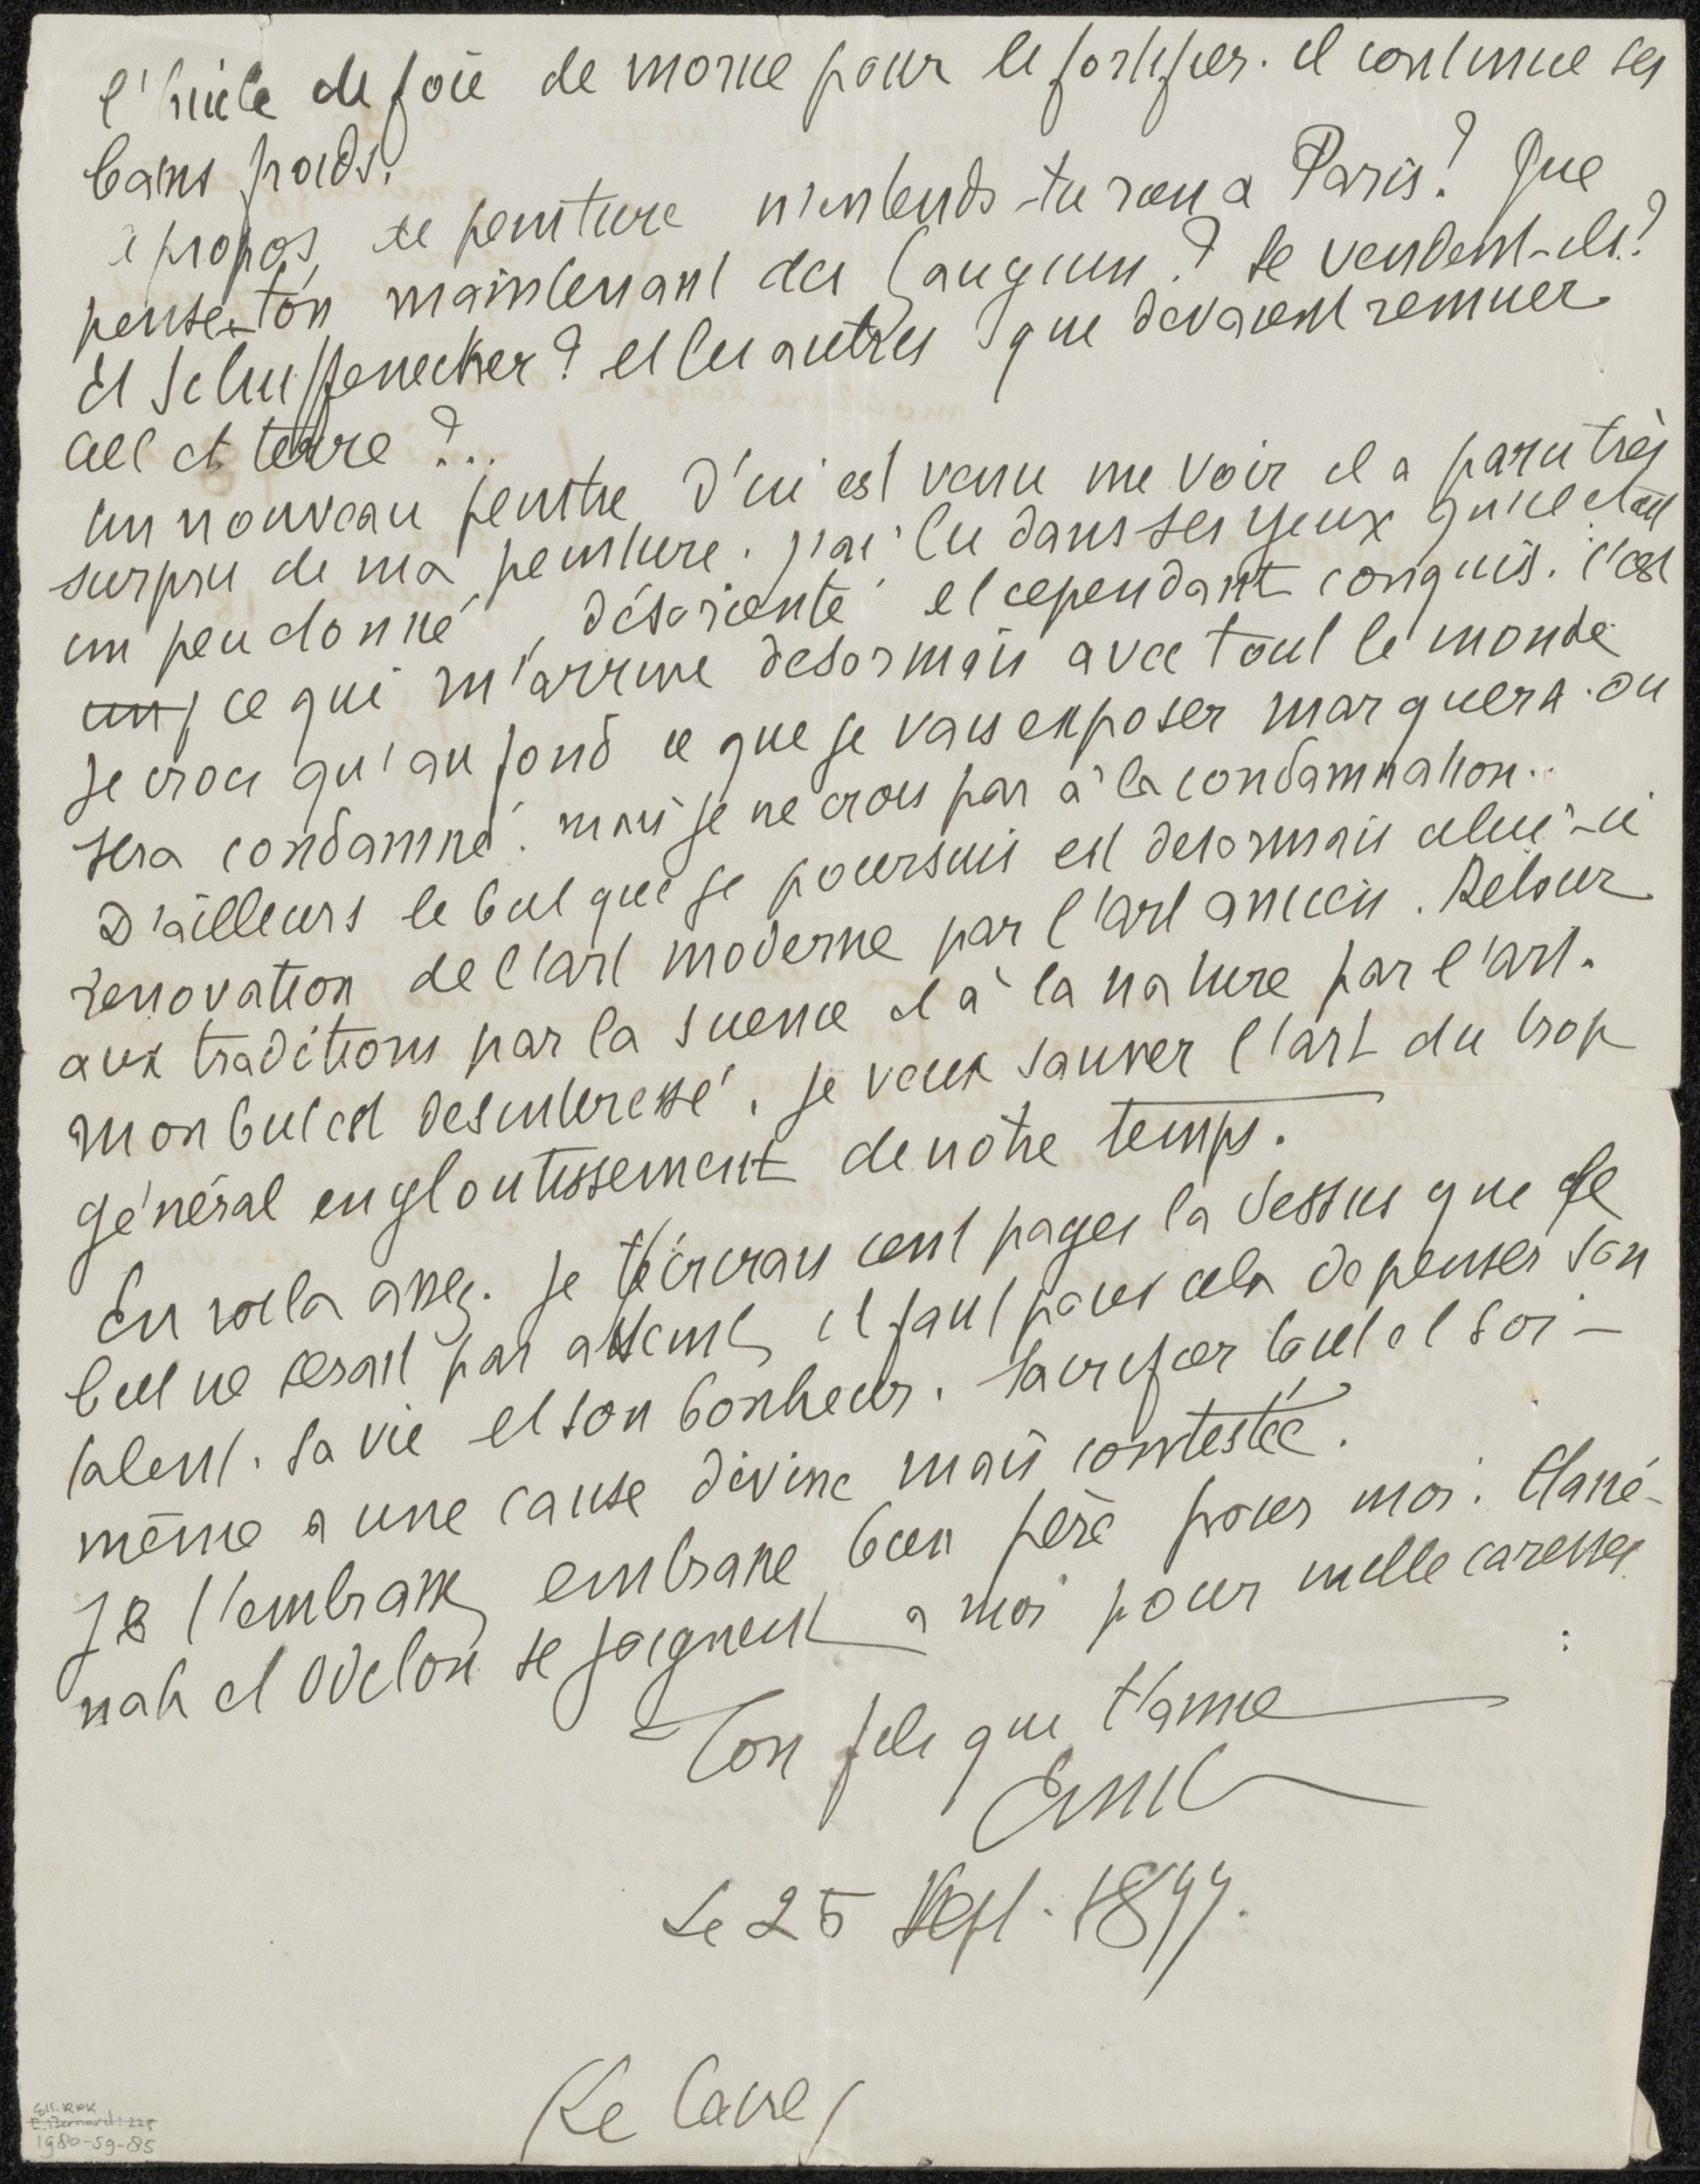 l'huile de foie de morue pour le fortifier. il continue ses
bains froids.
à propos de peinture n'entends-tu rien a Paris? Que
pense-t-on maintenant des Gauguin? se vendent-ils?
Et Schuffenecker? et les autres que devaient remuer
ciel et terre?...
un nouveau peintre d'ici est venu me voir il a paru très
surpris de ma peinture. j'ai lu dans ses yeux qu'il était
un peu donné, désorienté et cependant conquis. c'est
un ce qui m'arrive desormais avec tout le monde
je crois qu'au fond ce que je vais exposer marquera. ou
sera condamné. mais je ne crois pas à la condamnation..
D'ailleurs le but que je poursuis est desormais celui-ci
renovation de l'art moderne par l'art ancien. Retour
aux traditions par la science et à la nature par l'art.
mon but est desinteressé. je veux sauver l'art du trop
général engloutissement de notre temps.
En voila assez. je t'écrirais cent pages la dessus que le
but ne serait pas atteint, il faut pour cela depenser son
talent. sa vie et son bonheur. sacrifier tout et soi-
même a une cause divine mais contestée.
Je t'embrasse, embrasse bien père pour moi. Hané-
nah et Odelon se joignent a moi pour mille caresses
Ton fils que t'aime
Emile
Le 25 Sept. 1899.
Le Caire
Ell. RPK
E. Bernard: 225
1980-59-85